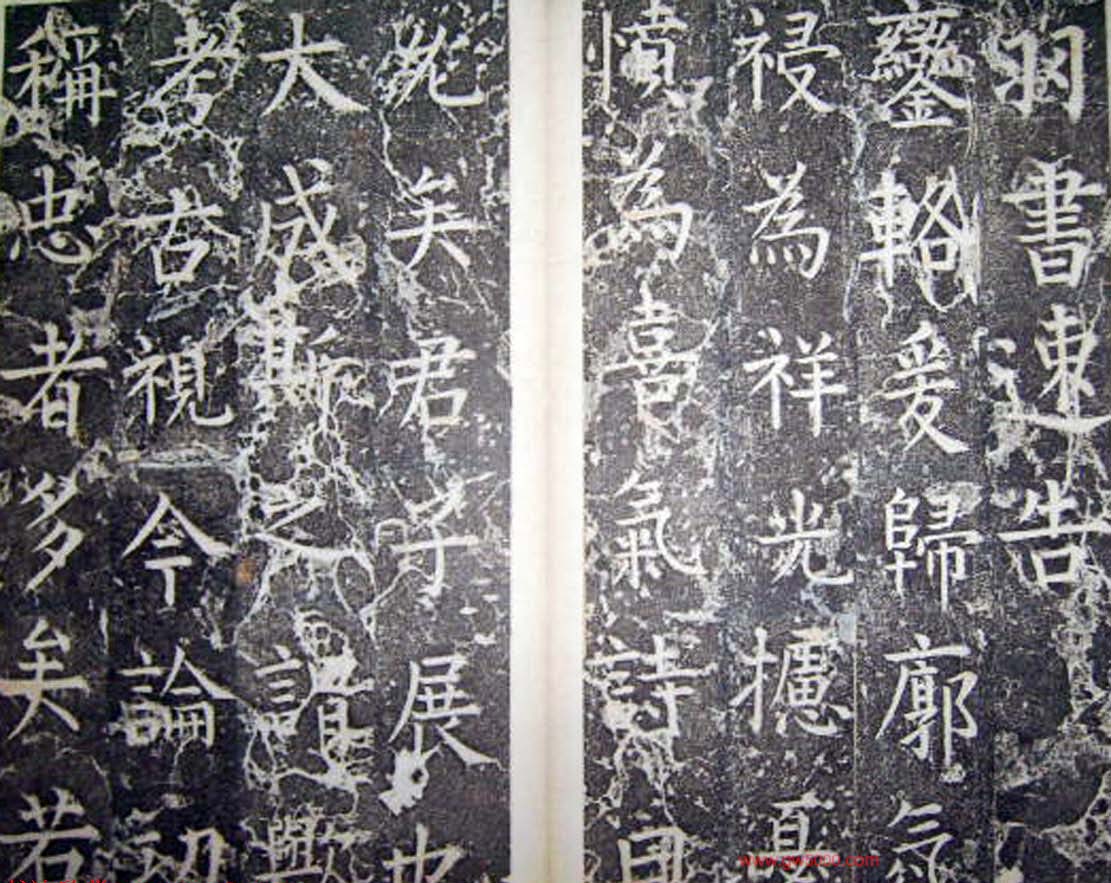 羽書速告
鑾輅爰歸廓氛
祲為祥光攄憂
憤為喜氣詩曰
允矣君子展也
大成斯之謂歟
考古視今論功
稱忠者多矣若